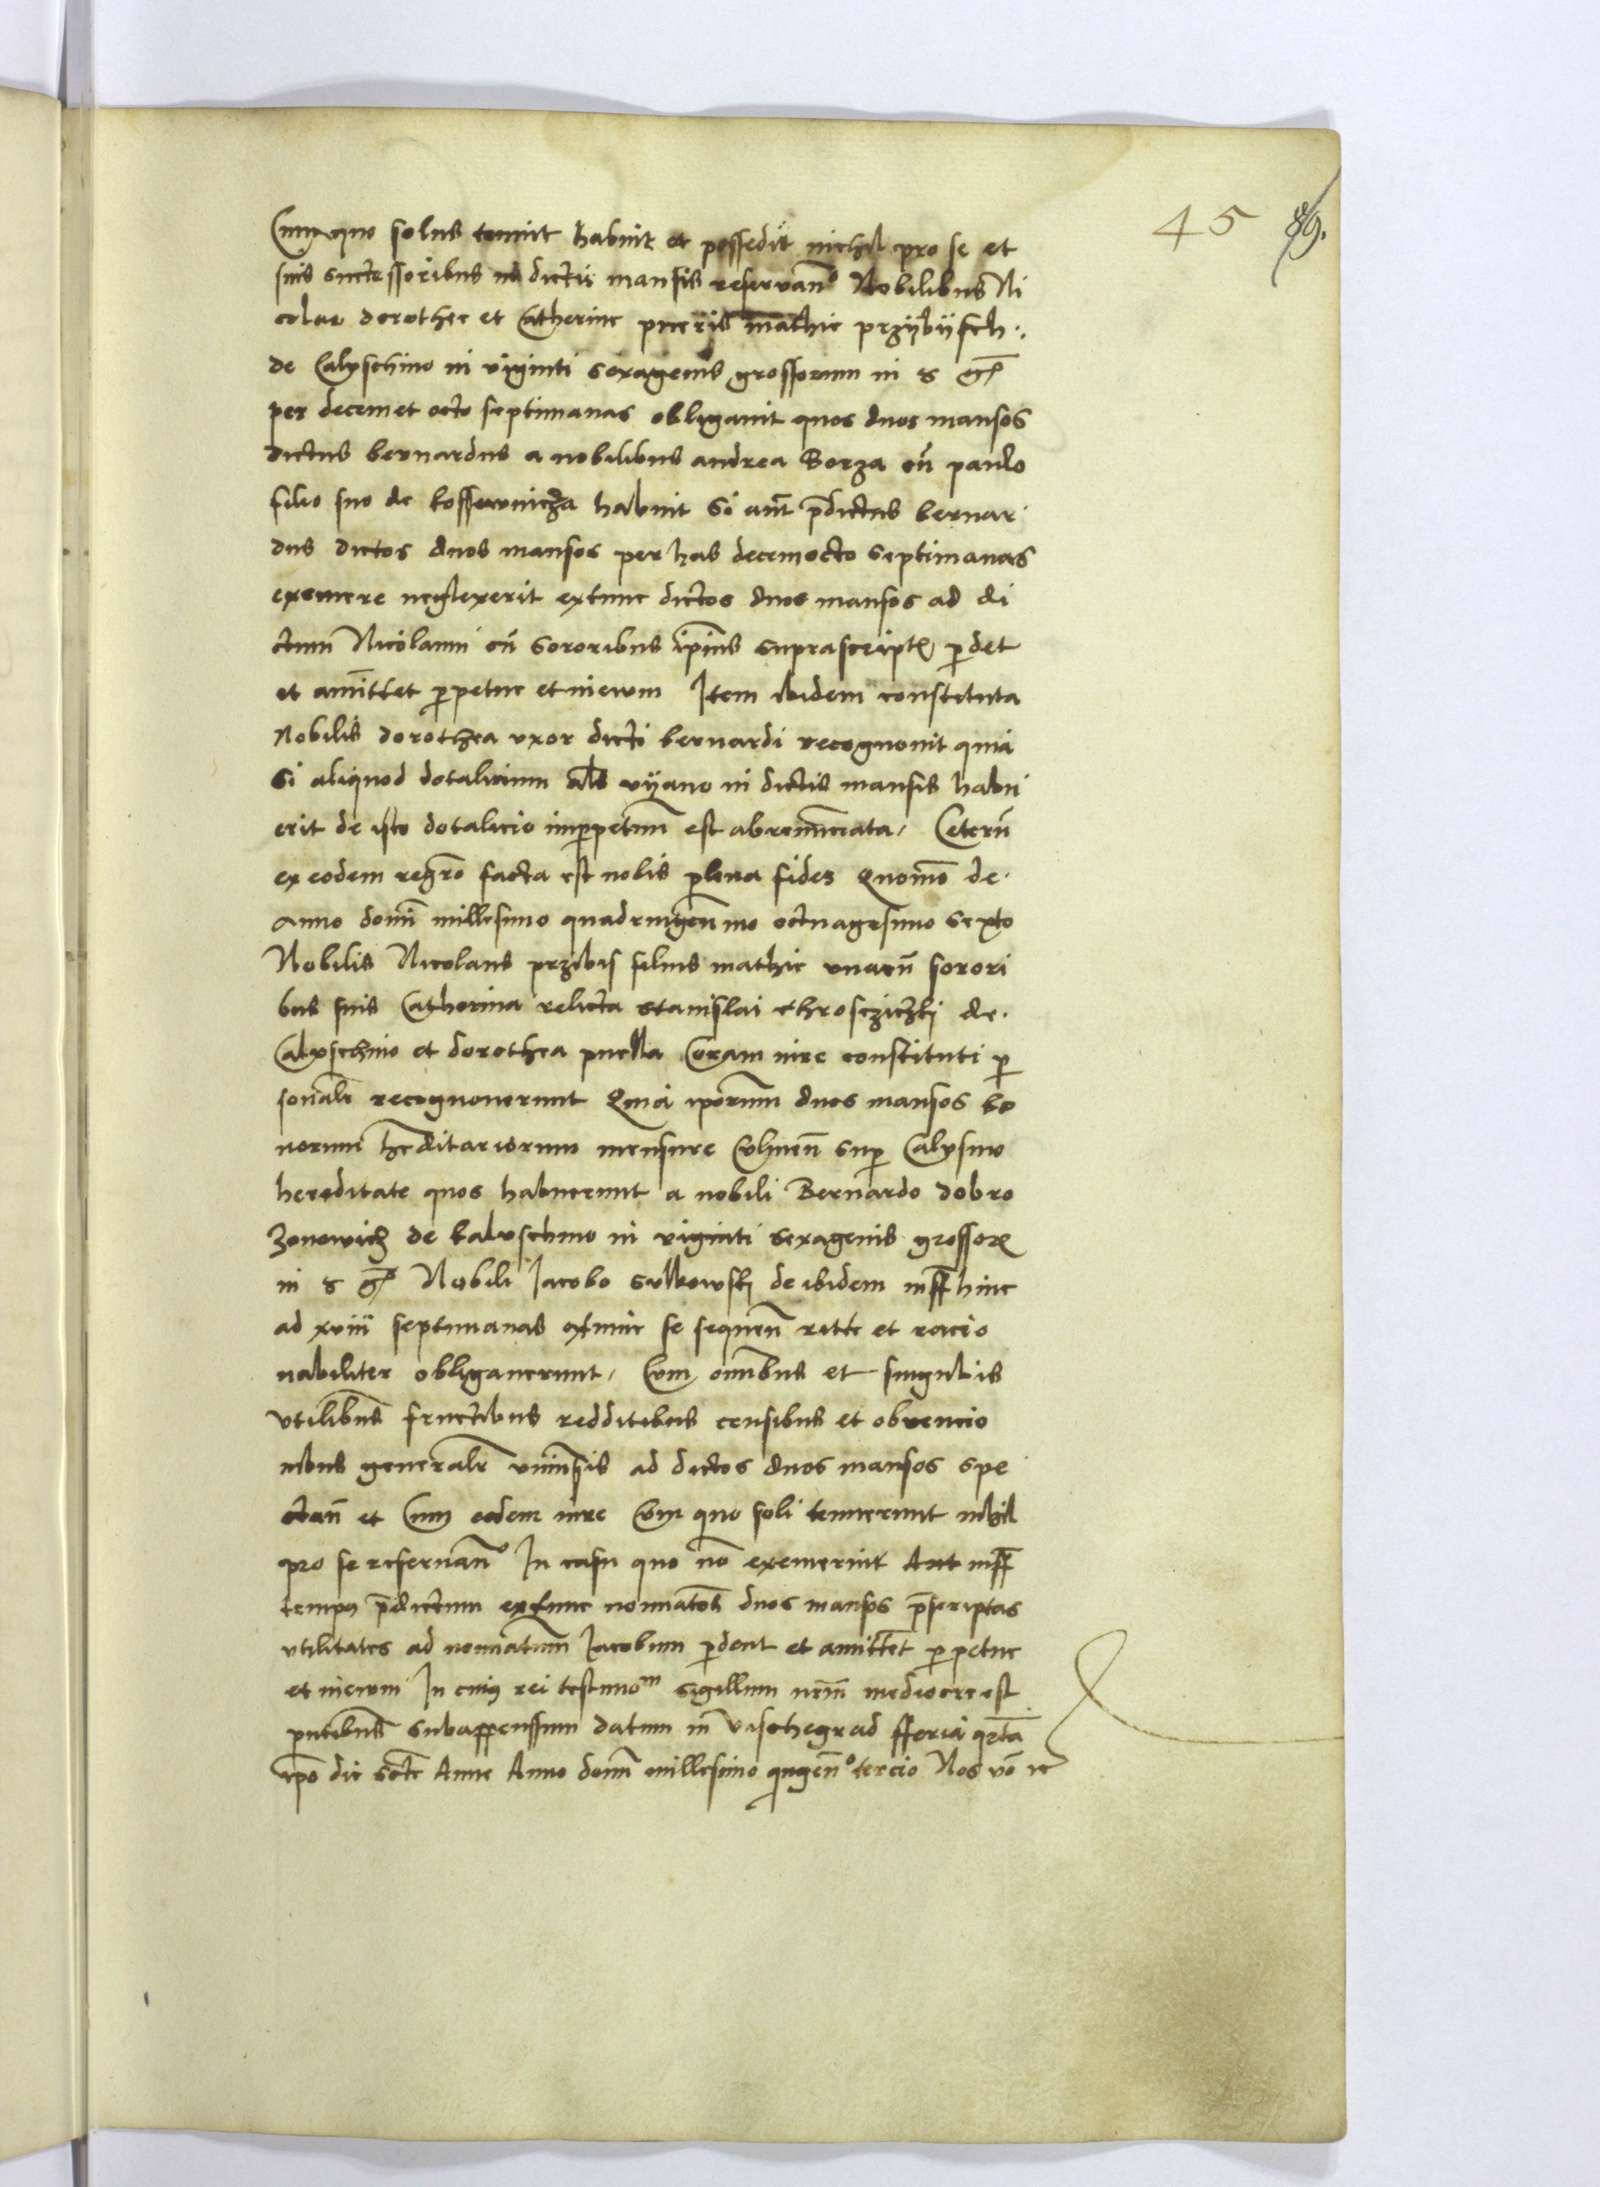 45 89.
Cum quo solus tenuit habuit et possedit nichil pro se et
suis successoribus in dictis mansis reservan̄o Nobilibus Ni
colao dorothee et Catherine pueris mathie przÿbÿsch.
de Calyschino in viginti sexagenis grossorum in
per decem et octo septimanas obligavit quos duos mansos
dictus bernardus a nobilibus andrea Borza cū paulo
filio suo de kossewnicza habuit Si aūt p̄dictus bernar
dus dictos duos mansos per has decemocto septimanas
exemere neglexerit extunc dictos duos mansos ad di
ctum Nicolaum cū sororibus ip̄ius suprascript perdet
et amittet perpetue et in ewm Item ibidem constituta
Nobilis dorothea uxor dicti bernardi recognovit quia
Si aliquod dotalicium als vyano in dictis mansis habu
erit de isto dotalicio imperpetuum est abrenunciata. Ceterū
ex eodem regr̄o facta est nobis plena fides Quom̄o de.
Anno domī millesimo quadringen̄mo octuagesimo sexto
Nobilis Nicolaus przibis filius mathie unacū sorori
bus suis Catherina relicta stanislai chrosziczki de.
Calyschino et dorothea puella Coram iure constituti per
sonalr̄ recognoverunt Quia ip̄orum duos mansos bo
norum hereditariorum mensure Culmen̄ super Calysino
hereditate quos habuerunt a nobili Bernardo dobro
zonowicz de kalyschino in viginti sexagenis grossor
in Nobili Jacobo sulkowski de ibidem infr̄ hinc
ad xviii septimanas extunc se sequen̄ ritte et racio
nabiliter obligaverunt. Cum omībus et singulis
utilibus fructibus redditibus censibus et obvencio
nibus generalr̄ univ̄sis ad dictos duos mansos spe
ctan̄ et Cum eodem iure Cum quo soli tenuerunt nihil
pro se reservan̄o In casu quo nō exemerint Aut infr̄
tempus p̄dictum extunc nominatos duos mansos p̄scriptas
utilitates ad nominatum Jacobum perdent et amittēt perpetue
et in ewm In cuius rei testimo^m sigillum nr̄m mediocre est
pn̄tibus subappensum datum in Vischegrad fferia q̄rta
ip̄o die sc̄te Anne Anno domī millesimo quingen̄o tercio Nos vō